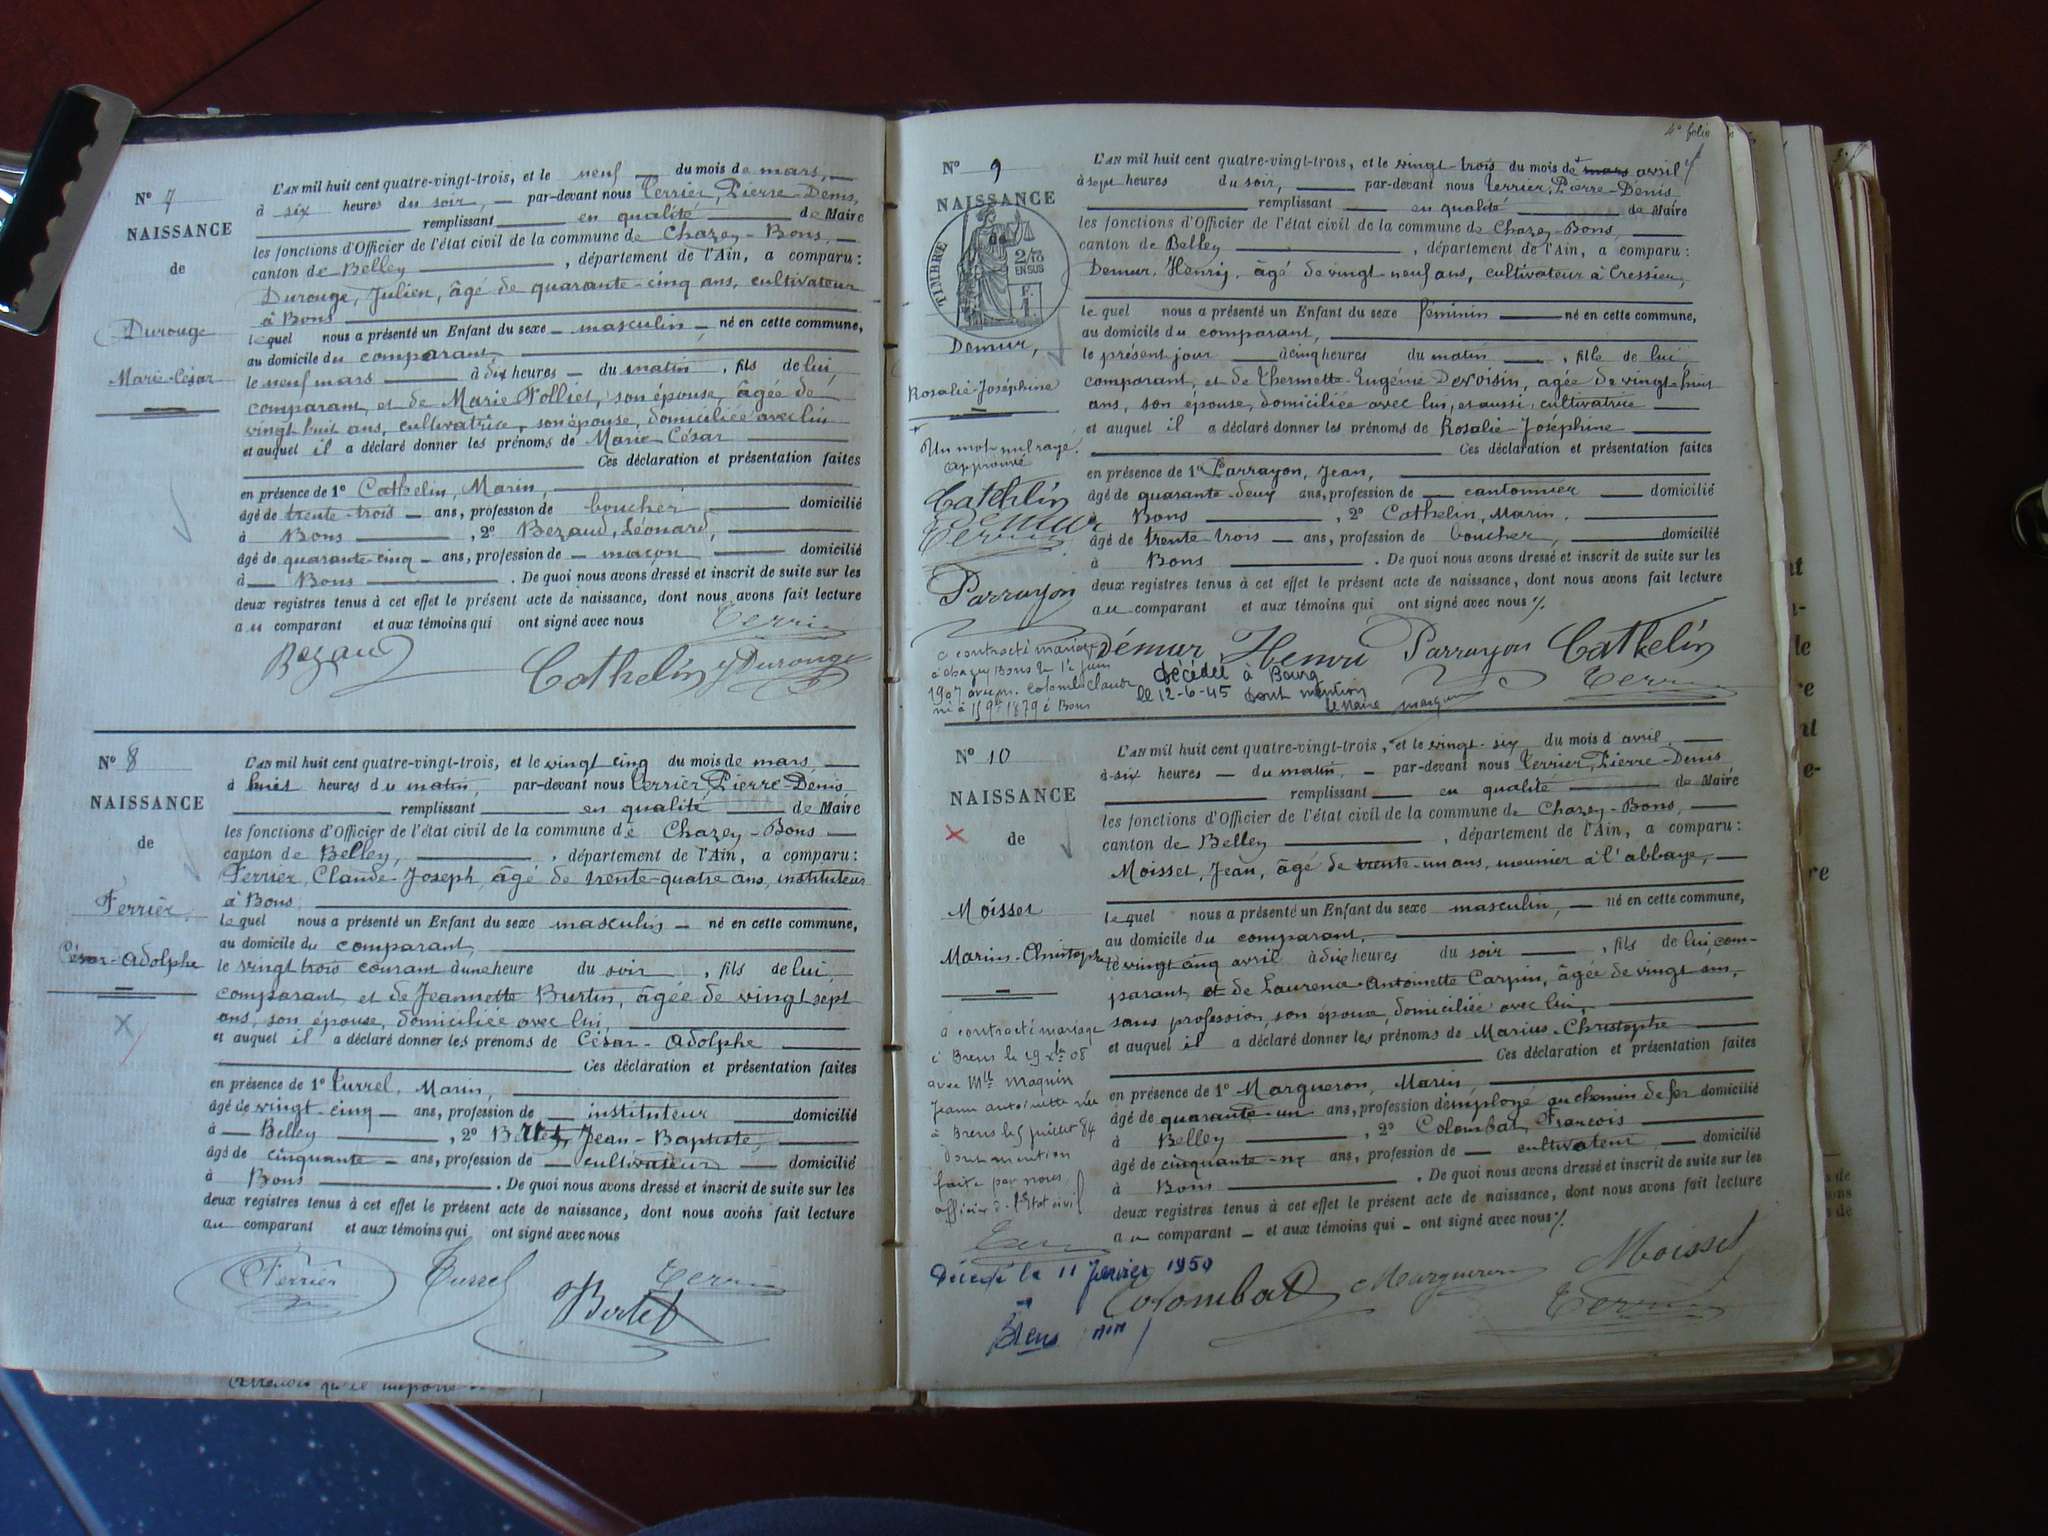 N° 7
NAISSANCE
de
Durouge
Marie-César
L'AN mil huit cent quatre-vingt-trois, et le neuf du mois de mars,
à six heures du soir, par-devant nous Terrier, Pierre-Denis,
remplissant en qualité de Maire
les fonctions d'Officier de l'état civil de la commune de Chazey-Bons,
canton de Belley, département de l'Ain, a comparu :
Durouge, Julien, âgé de quarante-cinq ans, cultivateur
à Bons
lequel nous a présenté un Enfant du sexe masculin, né en cette commune,
au domicile du comparant,
le neuf mars à dix heures du matin, fils de lui,
comparant, et de Marie Folliet, son épouse, âgée de
vingt huit ans, cultivatrice, son épouse, domiciliée avec lui
et auquel il a déclaré donner les prénoms de Marie-César
Ces déclaration et présentation faites
en présence de 1° Cathelin, Marin,
âgé de trente-trois ans, profession de boucher, domicilié
à Bons, 2° Bezaud, Léonard,
âgé de quarante-cinq ans, profession de maçon domicilié
à Bons. De quoi nous avons dressé et inscrit de suite sur les
deux registres tenus à cet effet le présent acte de naissance, dont nous avons fait lecture
au comparant et aux témoins qui ont signé avec nous
Bezaud Cathelin Durouge
N° 8
NAISSANCE
de
Ferrier
César-Adolphe
L'AN mil huit cent quatre-vingt-trois, et le vingt cinq du mois de mars
à huit heures du matin, par-devant nous Terrier, Pierre-Denis
remplissant en qualité de Maire
les fonctions d'Officier de l'état civil de la commune de Chazey-Bons
canton de Belley, département de l'Ain, a comparu :
Ferrier, Claude-Joseph, âgé de trente-quatre ans, instituteur
à Bons
lequel nous a présenté un Enfant du sexe masculin né en cette commune,
au domicile du comparant,
le vingt trois courant à une heure du soir, fils de lui,
comparant, et de Jeannette Burtin, âgée de vingt sept
ans, son épouse, domiciliée avec lui,
et auquel il a déclaré donner les prénoms de César-Adolphe
Ces déclaration et présentation faites
en présence de 1° Turrel, Marin,
âgé de vingt-cinq ans, profession de instituteur domicilié
à Belley, 2° Bertet, Jean-Baptiste,
âgé de cinquante ans, profession de cultivateur domicilié
à Bons. De quoi nous avons dressé et inscrit de suite sur les
deux registres tenus à cet effet le présent acte de naissance, dont nous avons fait lecture
au comparant et aux témoins qui ont signé avec nous
Ferrier Turrel Bertet
4e folio
N° 9
NAISSANCE
de
TIMBRE
2/10
EN SUS
Demur,
Rosalie-Joséphine
Un mot nul rayé
approuvé
Cathelin
Parrayon
L'AN mil huit cent quatre-vingt-trois, et le vingt-trois du mois de mars avril
à sept heures du soir, par-devant nous Terrier, Pierre-Denis
remplissant en qualité de Maire
les fonctions d'Officier de l'état civil de la commune de Chazey-Bons,
canton de Belley, département de l'Ain, a comparu :
Demur, Henry, âgé de vingt neuf ans, cultivateur à Cressieu,
lequel nous a présenté un Enfant du sexe féminin né en cette commune,
au domicile du comparant,
le présent jour à cinq heures du matin, fille de lui,
comparant, et de Thermette-Eugénie Devoisin, âgée de vingt-huit
ans, son épouse, domiciliée avec lui, et aussi cultivatrice
et auquel il a déclaré donner les prénoms de Rosalie-Joséphine
Ces déclaration et présentation faites
en présence de 1° Parrayon, Jean,
âgé de quarante-deux ans, profession de cantonnier domicilié
à Bons, 2° Cathelin, Marin,
âgé de trente trois ans, profession de boucher, domicilié
à Bons. De quoi nous avons dressé et inscrit de suite sur les
deux registres tenus à cet effet le présent acte de naissance, dont nous avons fait lecture
au comparant et aux témoins qui ont signé avec nous
Démur Henri Parrayon Cathelin
a contracté mariage
à Chazey Bons le 1e juin
1907 avec m. Colomb Claude
né à 1879 à Bons
décédée à Bourg
le 12-6-45 dont mention
le Maire
N° 10
NAISSANCE
de
Moisset
Marius-Christophe
L'AN mil huit cent quatre-vingt-trois, et le vingt-six du mois d'avril
à six heures du matin, par-devant nous Terrier, Pierre-Denis
remplissant en qualité de Maire
les fonctions d'Officier de l'état civil de la commune de Chazey-Bons,
canton de Belley, département de l'Ain, a comparu :
Moisset, Jean, âgé de trente-un ans, meunier à l'abbaye,
lequel nous a présenté un Enfant du sexe masculin, né en cette commune,
au domicile du comparant,
le vingt cinq avril à dix heures du soir, fils de lui, com-
parant, et de Laurence Antoinette Carpin, âgée de vingt ans,
sans profession, son épouse, domiciliée avec lui,
et auquel il a déclaré donner les prénoms de Marius-Christophe
Ces déclaration et présentation faites
en présence de 1° Margueron, Marin,
âgé de quarante-un ans, profession d'employé au chemin de fer domicilié
à Belley, 2° Colombat, François
âgé de cinquante-six ans, profession de cultivateur, domicilié
à Bons. De quoi nous avons dressé et inscrit de suite sur les
deux registres tenus à cet effet le présent acte de naissance, dont nous avons fait lecture
au comparant et aux témoins qui ont signé avec nous
Colombat Margueron Moisset
a contracté mariage
à Brens le 29 xbre 08
avec Mlle Maquin
Jeanne antoinette née
à Brens le 5 juillet 84
dont mention
faite par nous,
officier de l'Etat civil
Décédé le 11 Janvier 1950
à
Brens Ain